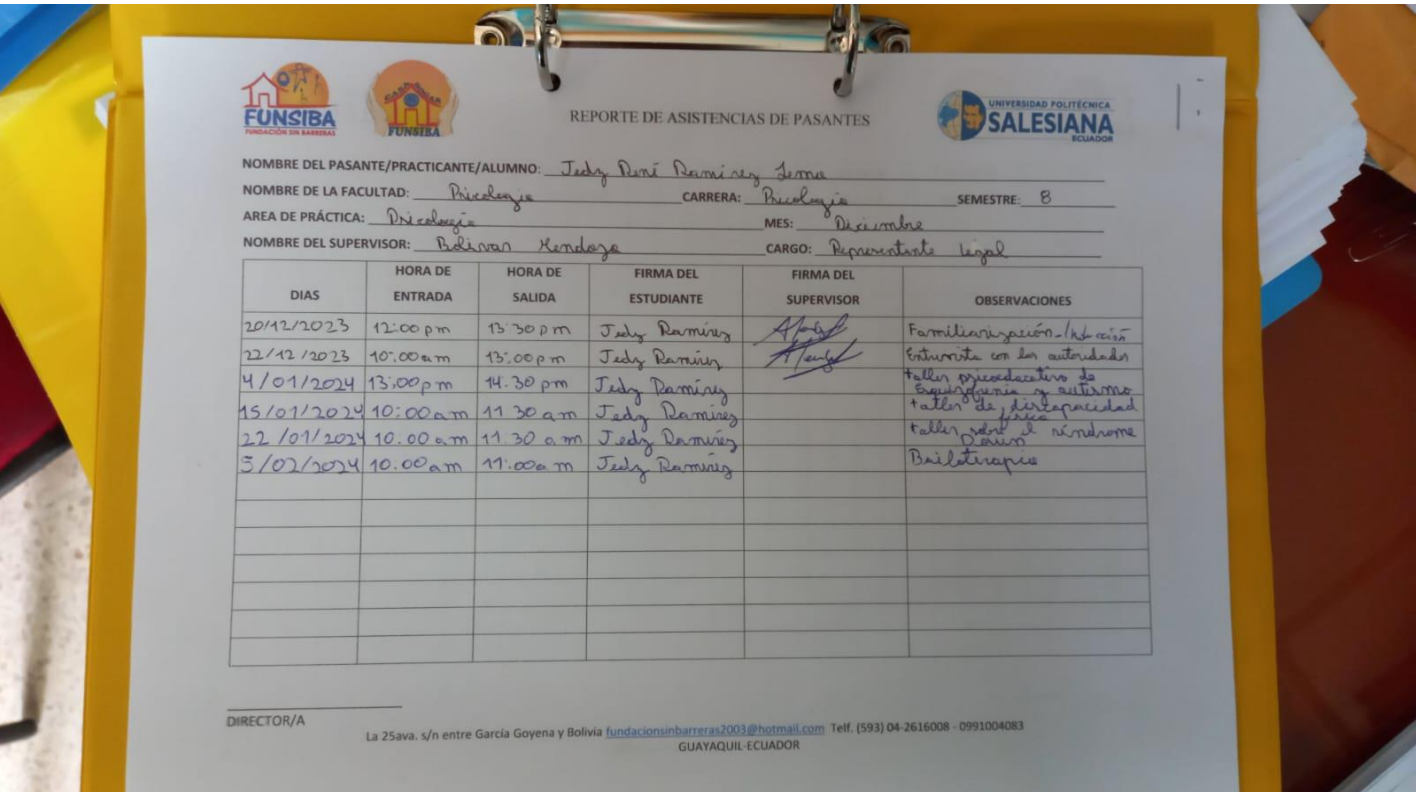 FUNSIBA
FUNDACIÓN SIN BARRERAS
CASA HOGAR
FUNSIBA
REPORTE DE ASISTENCIAS DE PASANTES
UNIVERSIDAD POLITÉCNICA
SALESIANA
ECUADOR
NOMBRE DEL PASANTE/PRACTICANTE/ALUMNO: Jedz René Ramirez Lema
NOMBRE DE LA FACULTAD: Psicología CARRERA: Psicología SEMESTRE: 8
AREA DE PRÁCTICA: Psicología MES: Diciembre
NOMBRE DEL SUPERVISOR: Bolivar Mendoza CARGO: Representante legal
DIAS HORA DE ENTRADA HORA DE SALIDA FIRMA DEL ESTUDIANTE FIRMA DEL SUPERVISOR OBSERVACIONES
20/12/2023 12:00 pm 13:30 pm Jedz Ramírez Familiarización -
22/12/2023 10:00 am 13:00 pm Jedz Ramírez Entrevista con las autoridades
4/01/2024 13:00 pm 14.30 pm Jedz Ramírez taller psicoeducativo de Esquizofrenia y autismo
15/01/2024 10:00 am 11 30 am Jedz Ramírez taller de discapacidad física
22/01/2024 10.00 am 11.30 am Jedz Ramírez taller sobre el síndrome Down
5/02/2024 10.00 am 11:00 am Jedz Ramírez Bailoterapia
DIRECTOR/A
La 25ava. s/n entre García Goyena y Bolivia fundacionsinbarreras2003@hotmail.com Telf. (593) 04-2616008 - 0991004083
GUAYAQUIL-ECUADOR